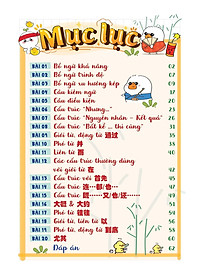 Mục lục
BÀI 01 Bổ ngữ khả năng 02
BÀI 02 Bổ ngữ trình độ 07
BÀI 03 Bổ ngữ xu hướng kép 09
BÀI 04 Câu kiêm ngữ
BÀI 05 Câu điều kiện
BÀI 06 Cấu trúc "Nhưng..."
BÀI 07 Cấu trúc "Nguyên nhân - Kết quả" 26
BÀI 08 Cấu trúc "Bất kể ... thì cũng" 31
BÀI 09 Giới từ, động từ 通过
BÀI 10 Phó từ 并
BÀI 11 Liên từ 而 40
BÀI 12 Các cấu trúc thường dùng
với giới từ 在
BÀI 13 Cấu trúc với 首先 45
BÀI 14 Cấu trúc 连…都/也…
BÀI 15 Cấu trúc 既…又/也/还……
BÀI 16 大概 & 大约
BÀI 17 Phó từ 往往
BÀI 18 Giới từ, liên từ 以
BÀI 19 Phó từ, động từ 到底
BÀI 20 尤其 60
Đáp án 62